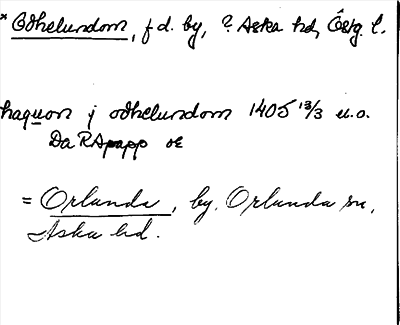 * Odhelundom, f d. by, ? Aska hd, Östg. l.
haquon j odhelundom 1405 13/3 u.o.
Da RApapp or
= Orlunda, by. Orlunda sn,
Aska hd.